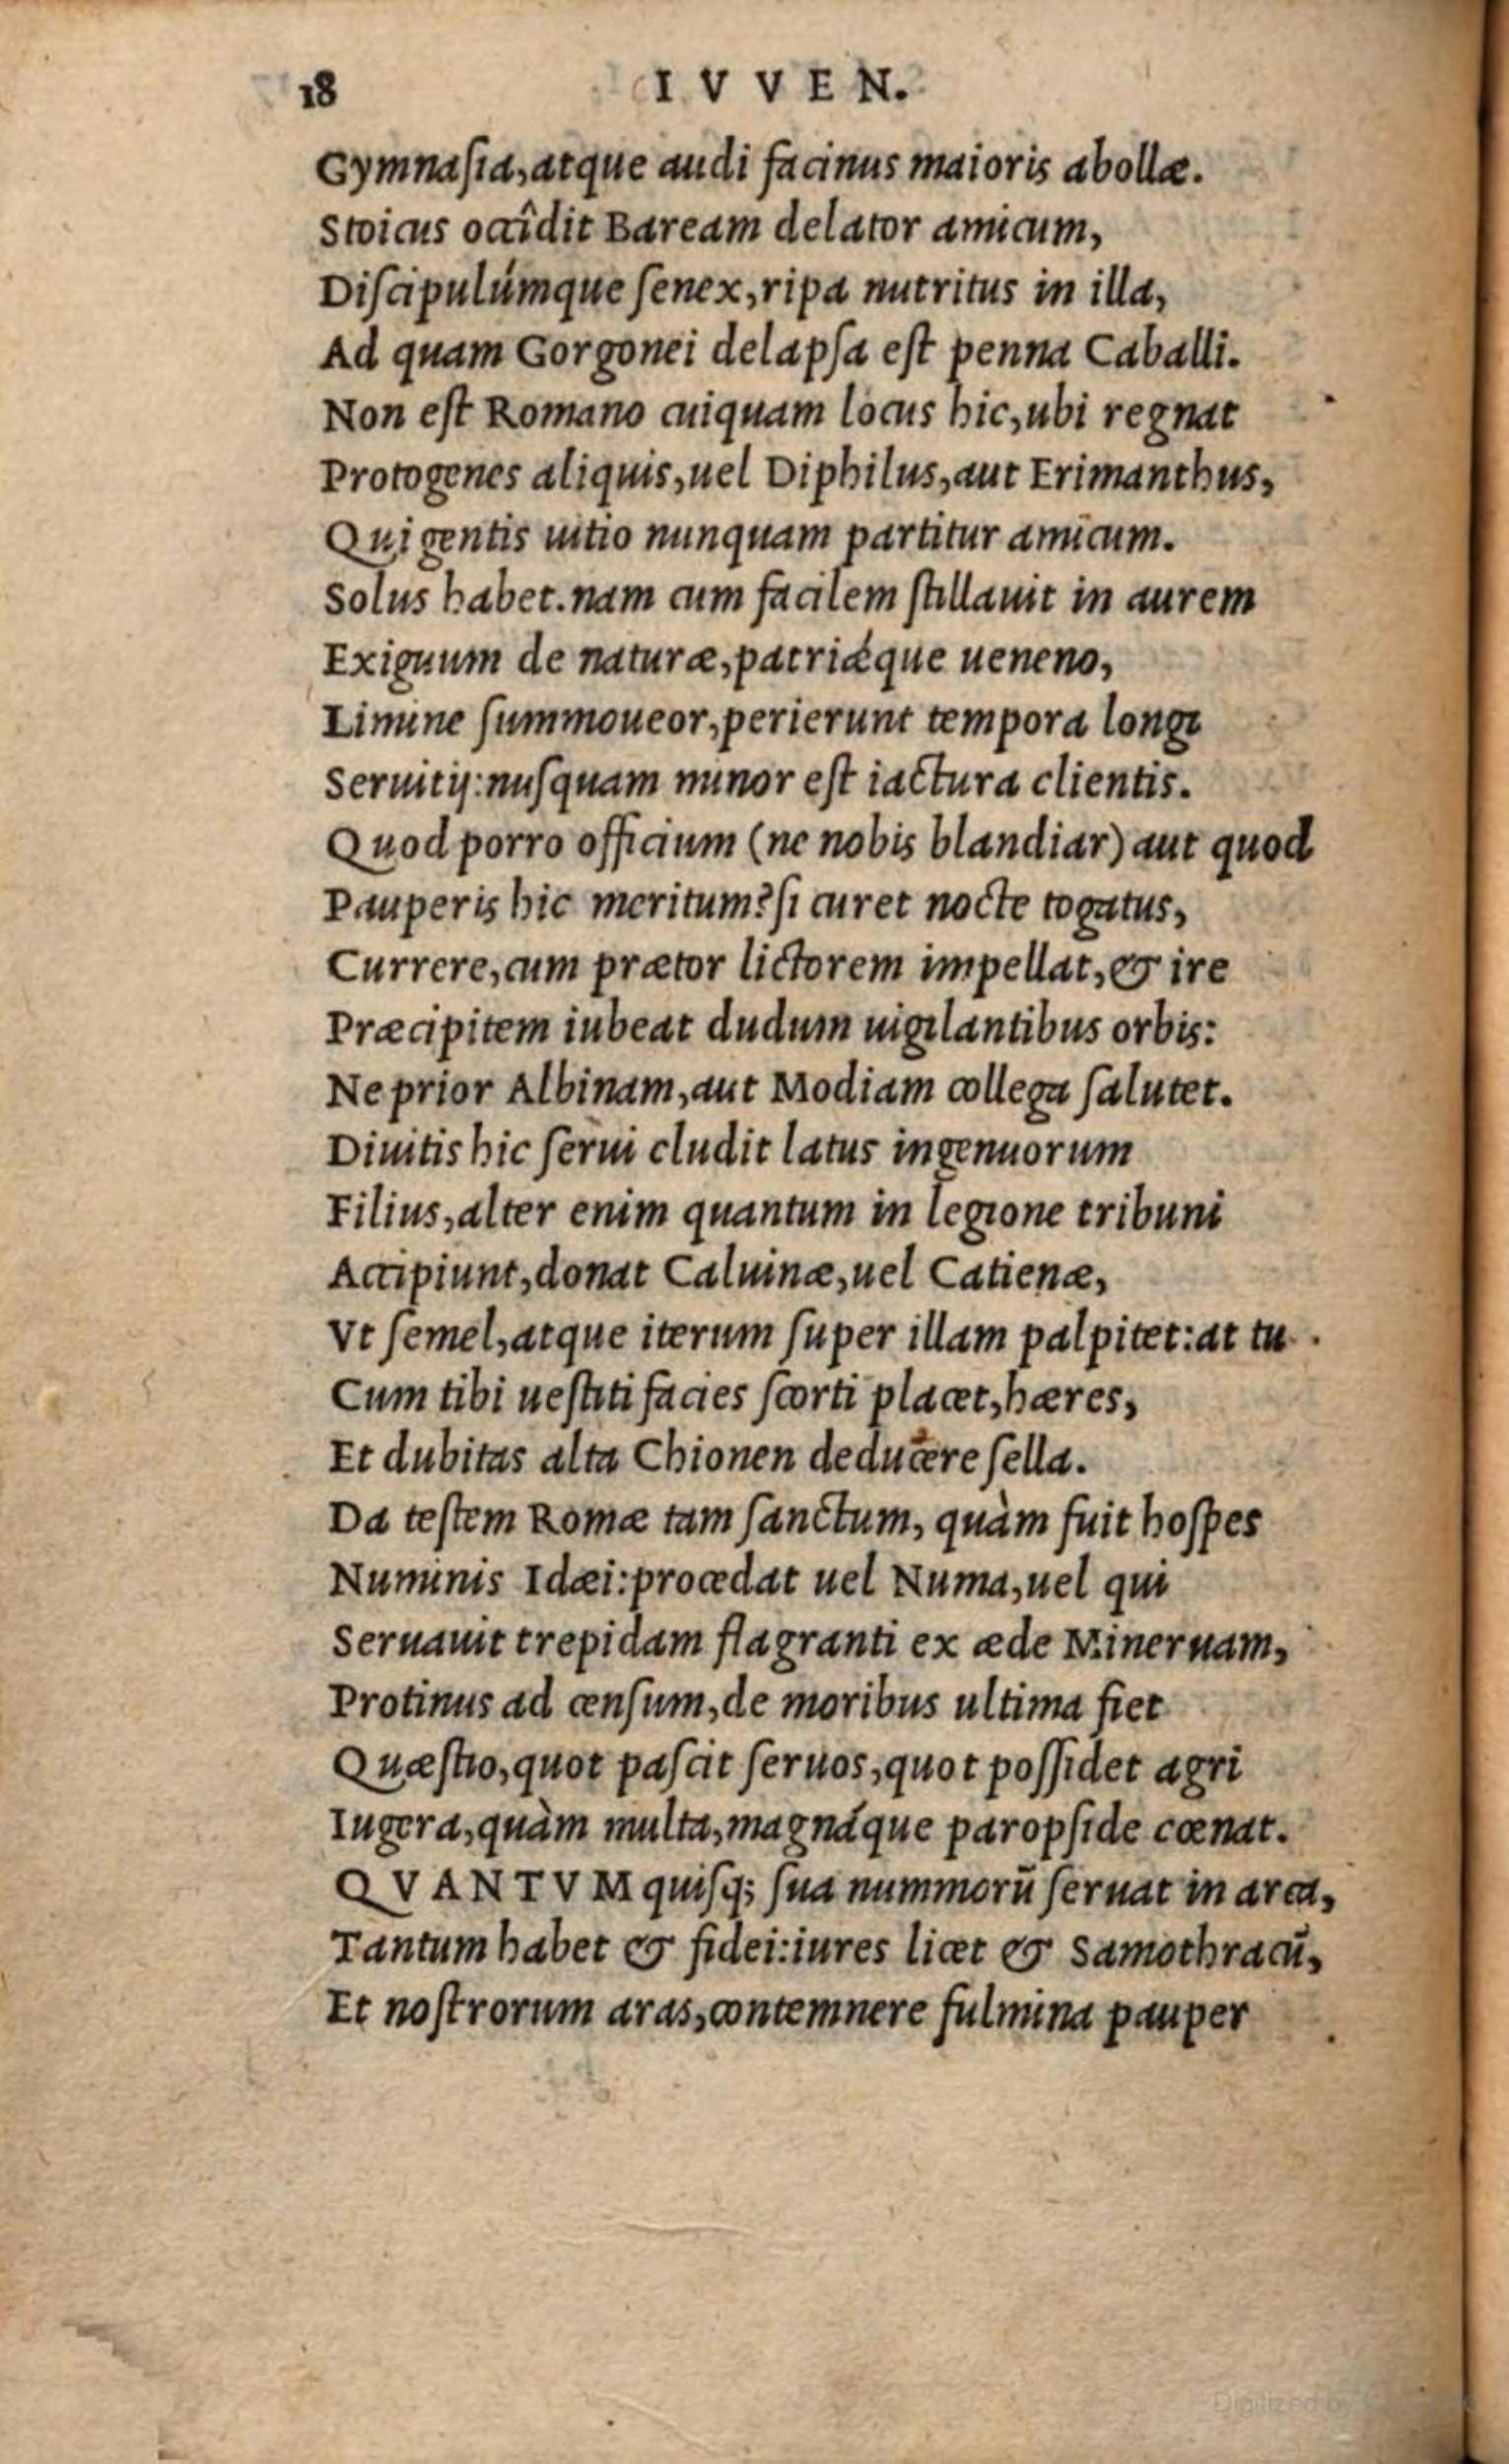 18 IVVEN.
Gymnaſia, atque audi facinus maioris abollæ.
Stoicus occîdit Baream delator amicum,
Diſcipulúmque ſenex, ripa nutritus in illa,
Ad quam Gorgonei delapſa eſt penna Caballi.
Non eſt Romano cuiquam locus hic, ubi regnat
Protogenes aliquis, uel Diphilus, aut Erimanthus,
Qui gentis uitio nunquam partitur amicum.
Solus habet. nam cum facilem ſtillauit in aurem
Exiguum de naturæ, patriǽque ueneno,
Limine ſummoueor, perierunt tempora longi
Seruitij: nuſquam minor eſt iactura clientis.
Quod porro officium (ne nobis blandiar) aut quod
Pauperis hic meritum? ſi curet nocte togatus,
Currere, cum prætor lictorem impellat, & ire
Præcipitem iubeat dudum uigilantibus orbis:
Ne prior Albinam, aut Modiam collega ſalutet.
Diuitis hic ſerui cludit latus ingenuorum
Filius, alter enim quantum in legione tribuni
Accipiunt, donat Caluinæ, uel Catienæ,
Vt ſemel, atque iterum ſuper illam palpitet: at tu
Cum tibi ueſtiti facies ſcorti placet, hæres,
Et dubitas alta Chionen deducere ſella.
Da teſtem Romæ tam ſanctum, quàm fuit hoſpes
Numinis Idæi: procedat uel Numa, uel qui
Seruauit trepidam flagranti ex æde Mineruam,
Protinus ad cenſum, de moribus ultima fiet
Quæſtio, quot paſcit ſeruos, quot poſſidet agri
Iugera, quàm multa, magnáque paropſide cœnat.
QVANTVM quiſq; ſua nummorū ſeruat in arca,
Tantum habet & fidei: iures licet & Samothracū,
Et noſtrorum aras, contemnere fulmina pauper